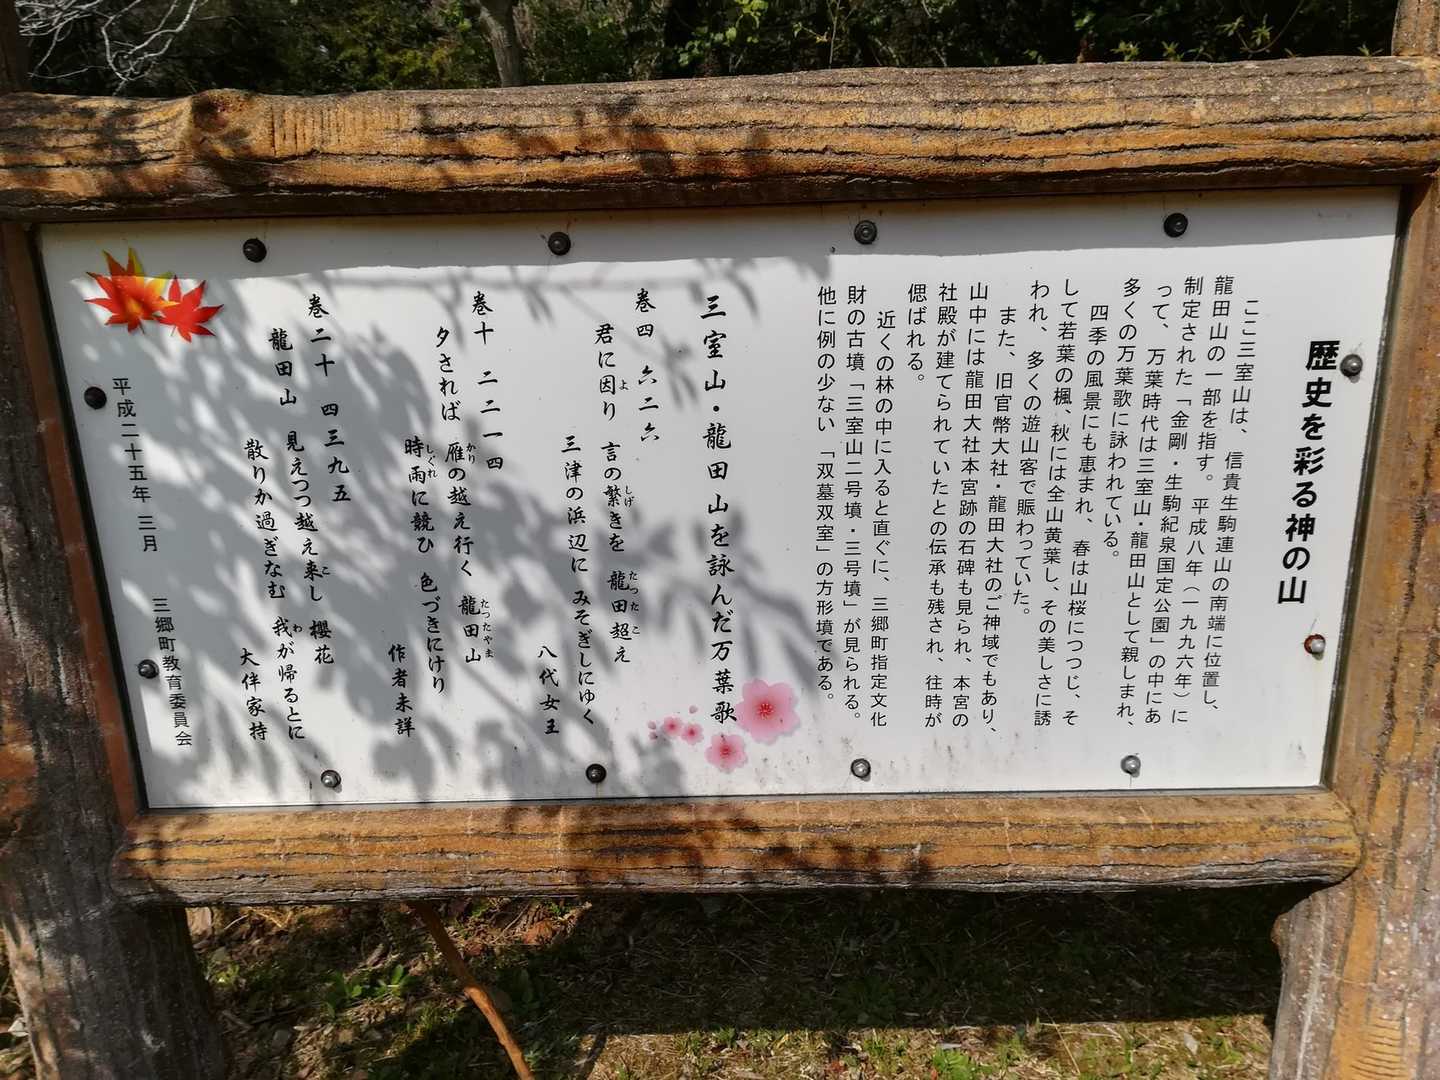 歴史を彩る神の山
ここ三室山は、信貴生駒連山の南端に位置し、
龍田山の一部を指す。平成八年（一九九六年）に
制定された「金剛・生駒紀泉国定公園」の中にあ
って、万葉時代は三室山・龍田山として親しまれ、
多くの万葉歌に詠われている。
四季の風景にも恵まれ、春は山桜につつじ、そ
して若葉の楓、秋には全山黄葉し、その美しさに誘
われ、多くの遊山客で賑わっていた。
また、旧官幣大社・龍田大社のご神域でもあり、
山中には龍田大社本宮跡の石碑も見られ、本宮の
社殿が建てられていたとの伝承も残され、往時が
偲ばれる。
近くの林の中に入ると直ぐに、三郷町指定文化
財の古墳「三室山二号墳・三号墳」が見られる。
他に例の少ない「双墓双室」の方形墳である。
三室山・龍田山を詠んだ万葉歌
巻四 六二六
君に因り 言の繁きを 龍田超え
よ しげ たつたこ
三津の浜辺に みそぎしにゆく
八代女王
巻十 二二一四
夕されば 雁の越え行く 龍田山
かり たつたやま
時雨に競ひ 色づきにけり
しぐれ
作者未詳
巻二十 四三九五
龍田山 見えつつ越え来し 櫻花
こ
散りか過ぎなむ 我が帰るとに
わ
大伴家持
平成二十五年 三月 三郷町教育委員会